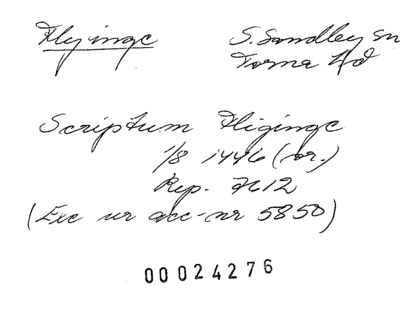 Flyinge S. Sandby sn
Torna hd
Scriptum Fliginge
1/8 1446 (or.)
Rep. 7612
(Exc ur acc-nr 5850)
00024276